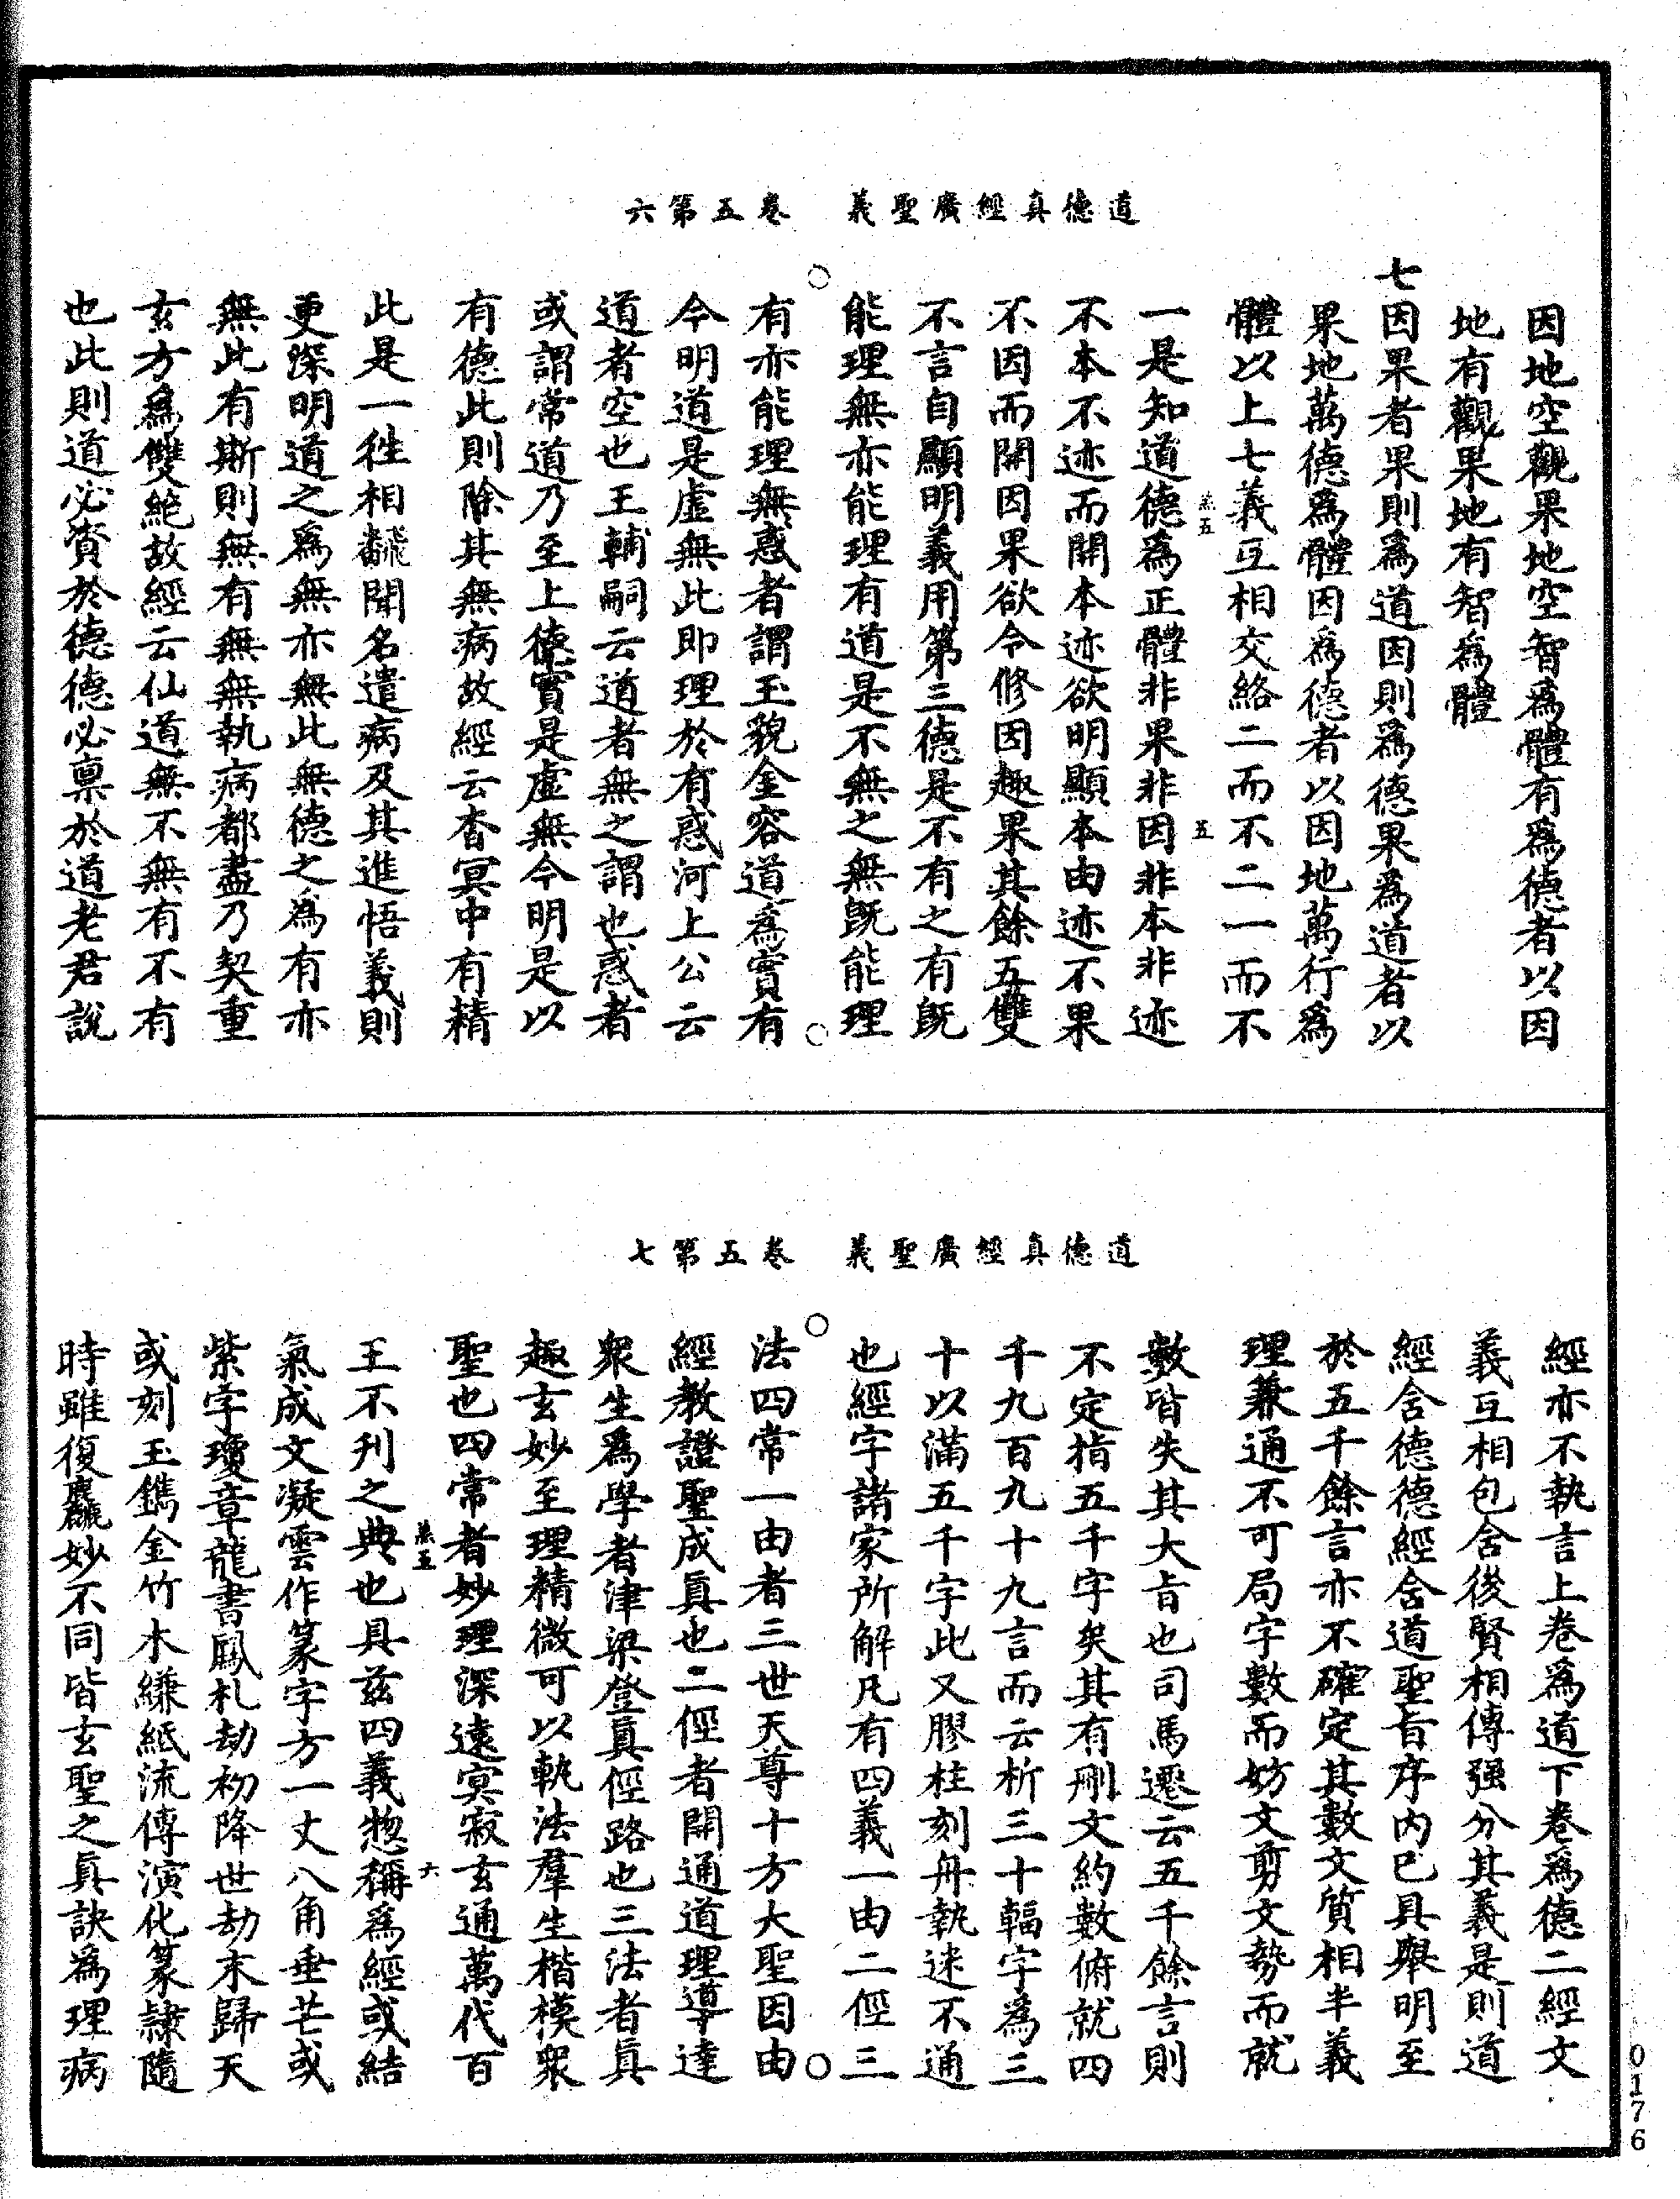 道德真經廣聖義　卷五第六
因地空觀果地空智爲體有爲德者以因
地有觀果地有智爲體
七因果者果則爲道因則爲德果爲道者以
果地萬德爲體因爲德者以因地萬行爲
體以上七義互相交絡二而不二一而不
羔五　五
一是知道德爲正體非果非因非本非迹
不本不迹而開本迹欲明顯本由迹不果
不因而開因果欲令修因趣果其餘五雙
不言自顯明義用第三德是不有之有旣
能理無亦能理有道是不無之無旣能理
有亦能理無惑者謂玉貌金容道爲實有
今明道是虛無此即理於有惑河上公云
道者空也王輔嗣云道者無之謂也惑者
或謂常道乃至上德實是虛無今明是以
有德此則除其無病故經云杳冥中有精
此是一徃相飜聞名遣病及其進悟義則
更深明道之爲無亦無此無德之爲有亦
無此有斯則無有無無執病都盡乃契重
玄方爲雙絶故經云仙道無不無有不有
也此則道必資於德德必稟於道老君說
道德真經廣聖義　卷五第七
經亦不執言上卷爲道下卷爲德二經文
義互相包含後賢相傳强分其義是則道
經含德德經含道聖旨序內巳具舉明至
於五千餘言亦不確定其數文質相半義
理兼通不可局字數而妨文剪文勢而就
數皆失其大旨也司馬遷云五千餘言則
不定指五千字矣其有刪文約數俯就四
千九百九十九言而云析三十輻字爲三
十以滿五千字此又膠柱刻舟執迷不通
也經字諸家所解凡有四義一由二徑三
法四常一由者三世天尊十方大聖因由
經教證聖成真也二徑者開通道理導達
衆生爲學者津梁登真徑路也三法者真
趣玄妙至理精微可以軌法羣生楷模衆
聖也四常者妙理深遠冥寂玄通萬代百
羔五　六
王不刊之典也具茲四義惣稱爲經或結
氣成文凝雲作篆字方一丈八角垂芒或
紫字瓊章龍書鳳札劫初降世劫末歸天
或刻玉鐫金竹木縑紙流傳演化篆隷隨
時雖復麤妙不同皆玄聖之真訣爲理病
0176